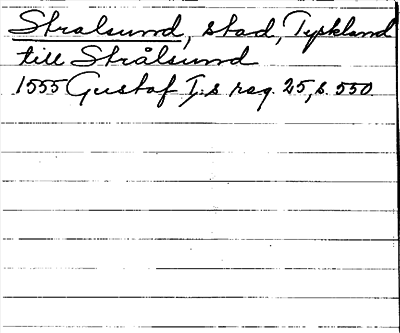 Stralsund, stad, Tyskland
till Strålsund
1555 Gustaf I:s reg. 25, s. 550